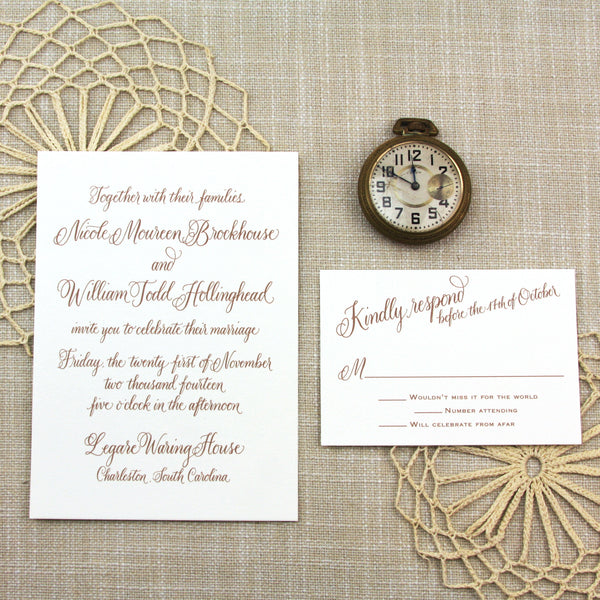 Together with their families
Nicole Maureen Brookhouse
and
William Todd Hollinghead
invite you to celebrate their marriage
Friday, the twenty first of November
two thousand fourteen
five o'clock in the afternoon
Legare Waring House
Charleston, South Carolina
12
1
2
3
4
5
6
7
8
9
10
11
Kindly respond
before the 17th of October
M
Wouldn't miss it for the world
Number attending
Will celebrate from afar